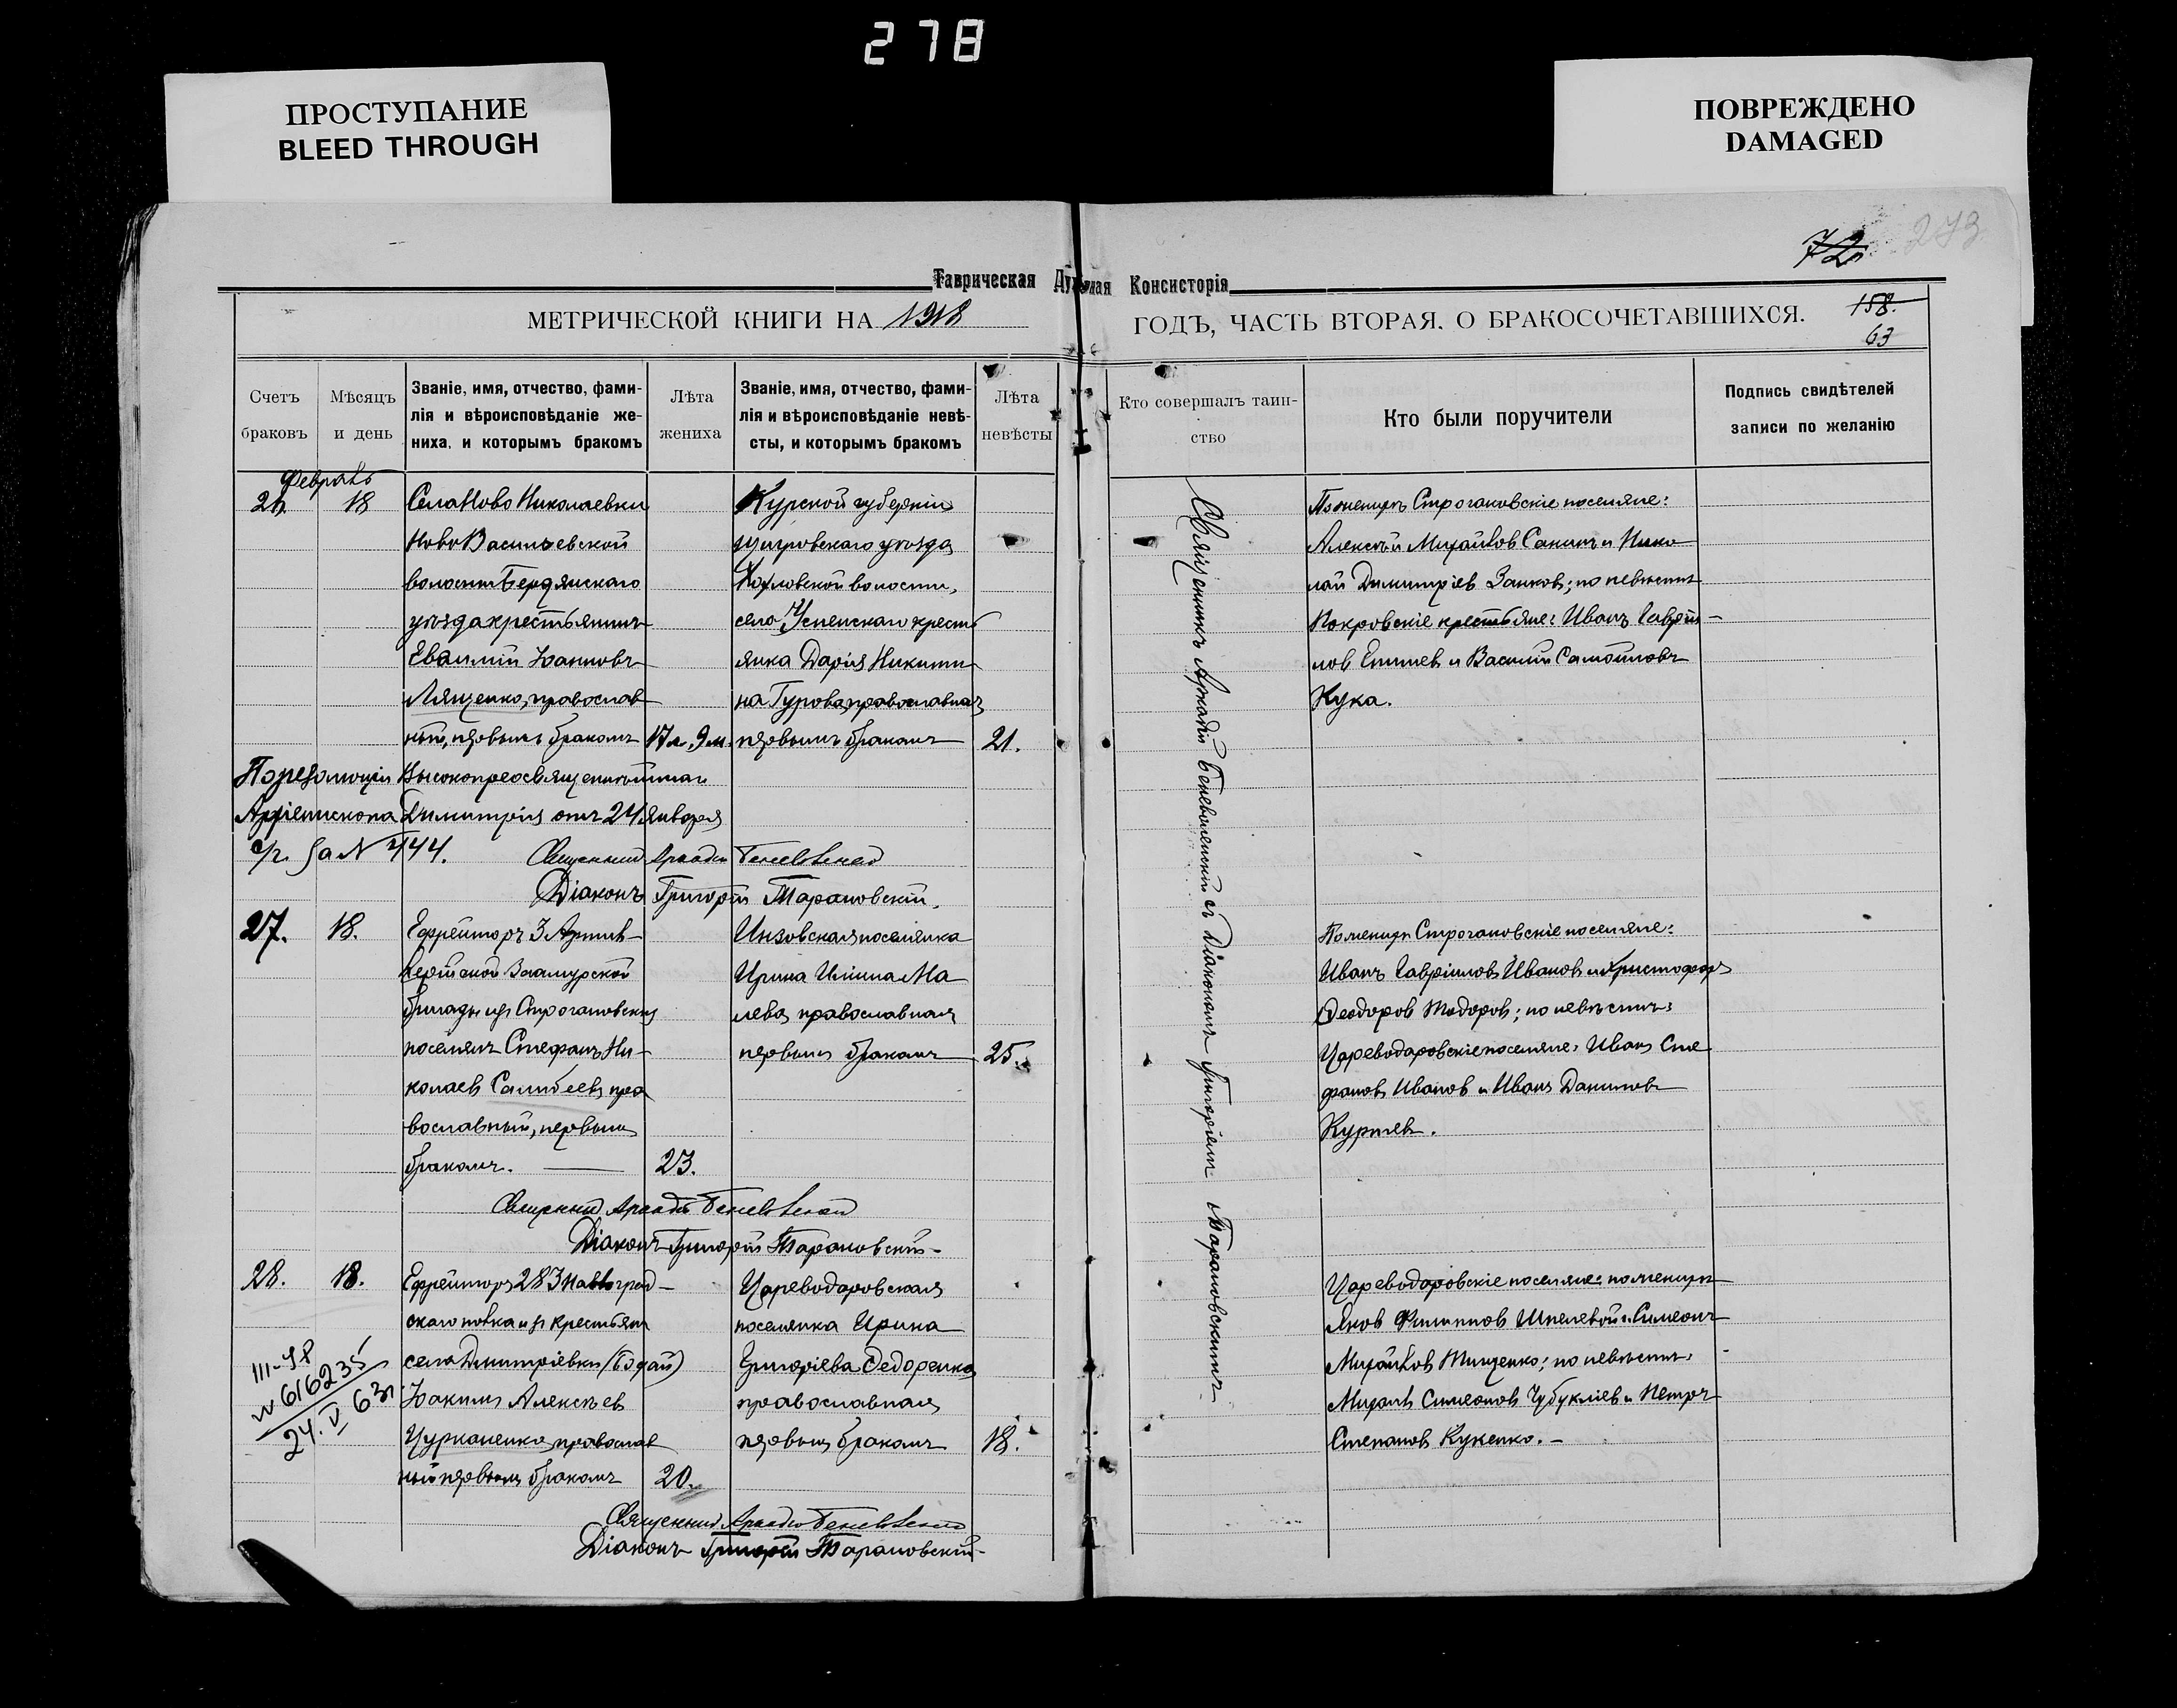 278
ПРОСТУПАНИЕ
BLEED THROUGH
ПОВРЕЖДЕНО
DAMAGED
72
273
Таврическая Духовная Консисторія
МЕТРИЧЕСКОЙ КНИГИ НА 1918
ГОДЪ, ЧАСТЬ ВТОРАЯ, О БРАКОСОЧЕТАВШИХСЯ.
158.
63
Счетъ браковъ
Мѣсяцъ и день
Званіе, имя, отчество, фами-
лія и вѣроисповѣданіе же-
ниха, и которымъ бракомъ
Лѣта жениха
Званіе, имя, отчество, фами-
лія и вѣроисповѣданіе невѣ-
сты, и которымъ бракомъ
Лѣта невѣсты
Кто совершалъ таин-
ство
Кто были поручители
Подпись свидѣтелей
записи по желанію
Февраль
26. 18
Села Ново Николаевки
Ново Васильевской
волости Бердянскаго
уѣзда крестьянинъ
Іоанновъ
Лященко, православ
ный, первымъ бракомъ
17 л. 9 м.
Курской губерніи
Щигровскаго уѣзда
волости,
села Успенскаго кресть
янка Дарія Никити
на Гурова, православная
первымъ бракомъ
21.
Священникъ Аркадій съ Діакономъ Григоріемъ Тарановскимъ
По женихѣ Строгановскіе поселяне:
Алексѣй Михайлов Санинъ и Нико
лай Димитріев Занков; по невѣстѣ
Покровскіе крестьяне: Иванъ Гаврiи-
лов и Василій Самойловъ
Кука.
По резолюціи Высокопреосвященнѣйшаго
Архіепископа Димитрія отъ 24 января
с/г. за N 444.
Священник Аркадій
Діаконъ Григорій Тарановскій.
27. 18.
Ефрейторъ 3 Артил-
лерійской Заамурской
бригады из Строгановских
поселянъ Стефанъ Ни-
колаев Салибеев, пра
вославный, первымъ
бракомъ.
23.
Инзовская поселянка
Ирина Ильина Ма
лева, православная
первымъ бракомъ
25.
По женихѣ Строгановскіе поселяне:
Иванъ Гавріилов Иванов и Христофоръ
Ѳеодоров Тодоров; по невѣстѣ:
Цареводаровскіе поселяне: Иванъ Сте
фанов Иванов и Иванъ Данилов
Куртев.
Священник Аркадій
Діаконъ Григорій Тарановскій.
28. 18.
Ефрейторъ 283 Павлоград-
скаго полка из крестьянъ
села Дмитріевки (Бодай)
Іоакимъ Алексѣев
Цурканенко, православ
ный первымъ бракомъ
20.
Цареводаровская
поселянка Ирина
Григоріева Федоренко
православная
первымъ бракомъ
18.
Цареводаровскіе поселяне: по женихѣ
Яков Филиппов Шпелевой и Симеонъ
Михайлов Тищенко; по невѣстѣ:
Михаилъ Симеонов Чубукліев и Петръ
Степанов Кукенко.-
III-ЯР
N 616235
24. V 63г
Священник Аркадій
Діаконъ Григорій Тарановскій